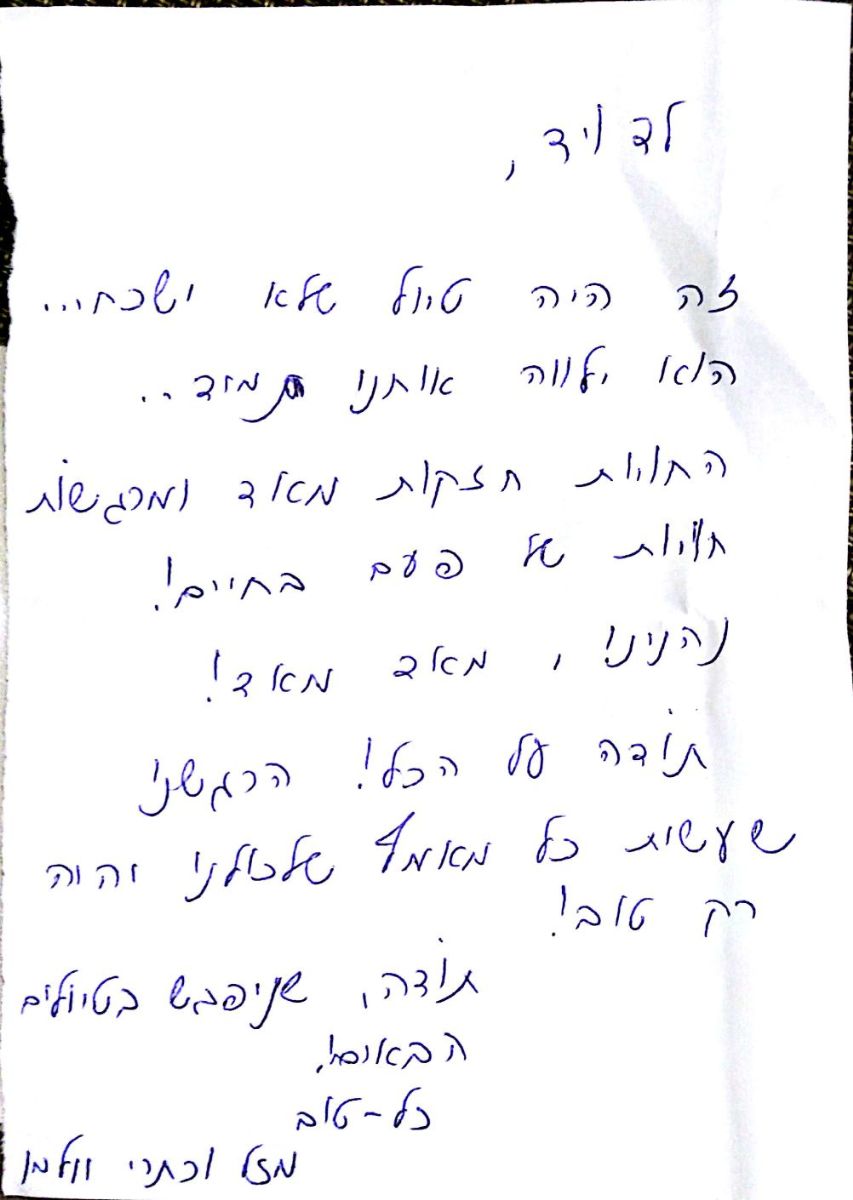 לדויד,
זה היה טיול שלא ישכח...
הוא ילווה אותנו תמיד..
החויות חזקות מאוד ומרגשות
חויות של פעם בחיים!
נהנינו, מאד מאד!
תודה על הכל! הרגשנו
שעשית כל מאמץ שלכולנו יהוה
רק טוב!
תודה, שניפגש בטיולים
הבאים!
כל-טוב
מזל וכתרי וולמן